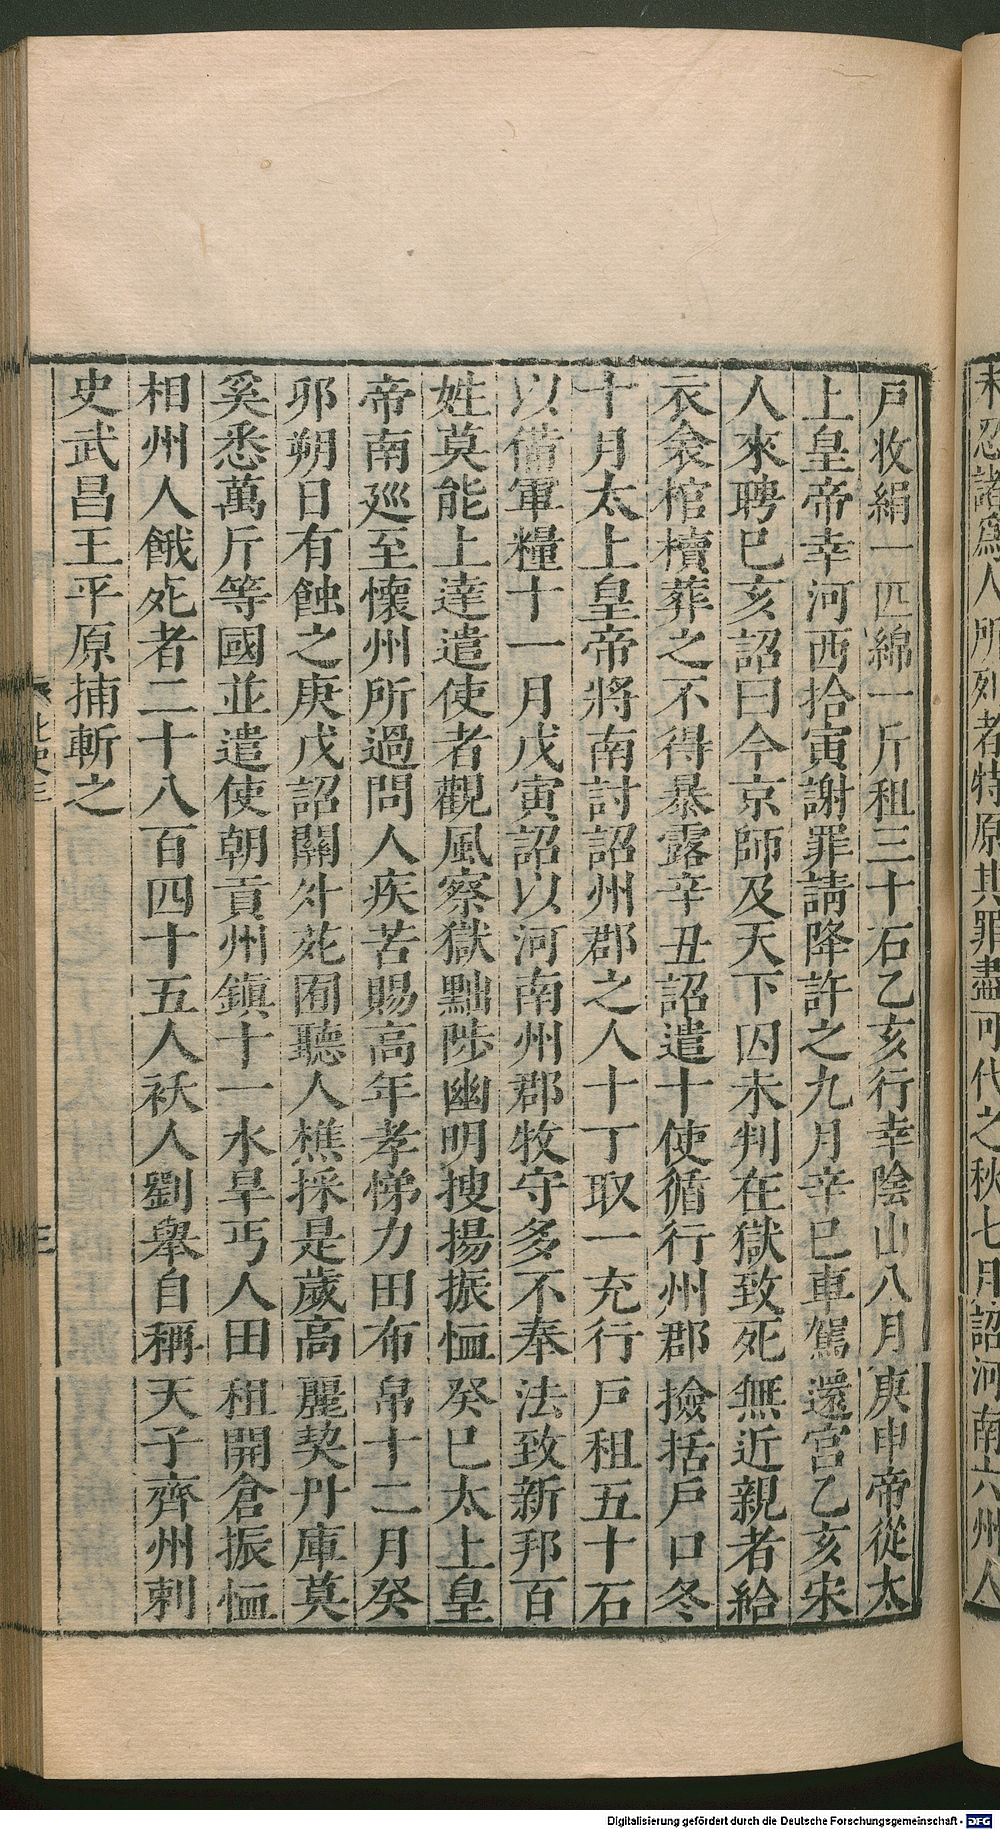 未忍諸爲人所列者特原其罪盡可代之秋七月詔河南六州人
戶收絹一匹綿一斤租三十石乙亥行幸陰山八月庚申帝從太
上皇帝幸河西拾寅謝罪請降許之九月辛巳車駕還宮乙亥宋
人來聘巳亥詔曰今京師及天下囚未判在獄致死無近親者給
衣衾棺櫝葬之不得暴露辛丑詔遣十使循行州郡撿括戶口冬
十月太上皇帝將南討詔州郡之人十丁取一充行戶租五十石
以備軍糧十一月戊寅詔以河南州郡牧守多不奉法致新邦百
姓莫能上達遣使者觀風察獄黜陟幽明搜揚振恤癸巳太上皇
帝南廵至懷州所過問人疾苦賜高年孝悌力田布帛十二月癸
邜朔日有蝕之庚戌詔關外苑囿聽人樵採是歲高麗契丹庫莫
奚悉萬斤等國並遣使朝貢州鎮十一水旱丐人田租開倉振恤
相州人餓死者二十八百四十五人祅人劉舉自稱天子齊州刺
史武昌王平原捕斬之
北史三
三
Digitalisierung gefördert durch die Deutsche Forschungsgemeinschaft - DFG